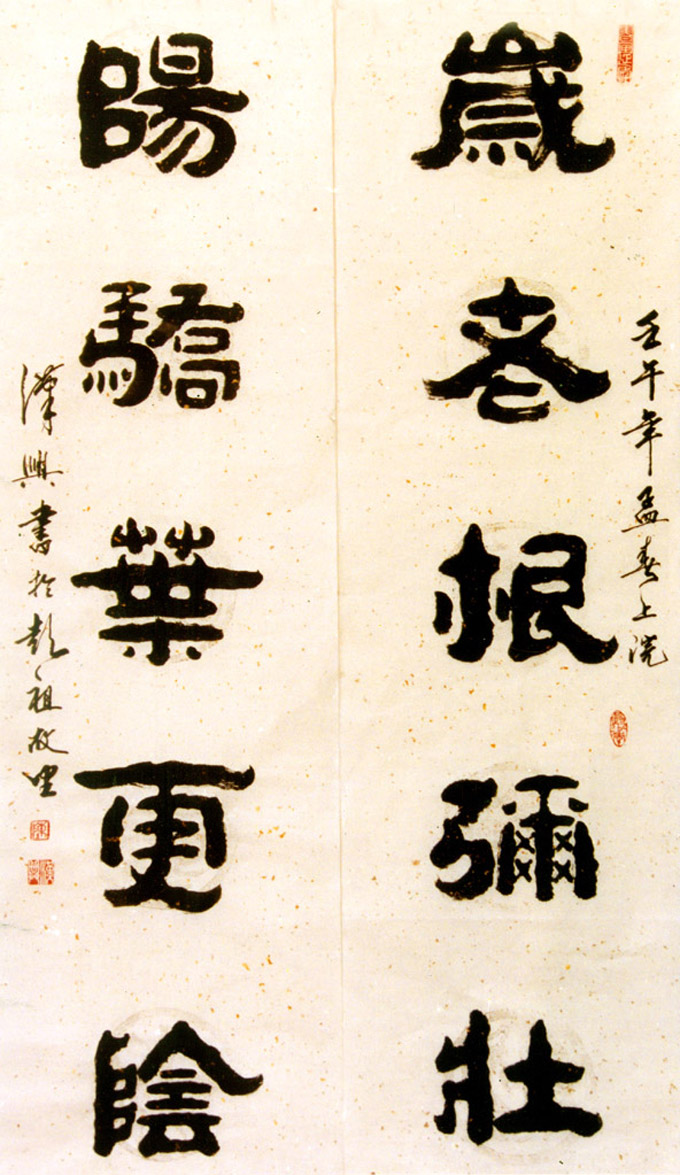 壬午年孟春上浣
歲老根彌壯
陽驕葉更陰
漢興書於彭祖故里